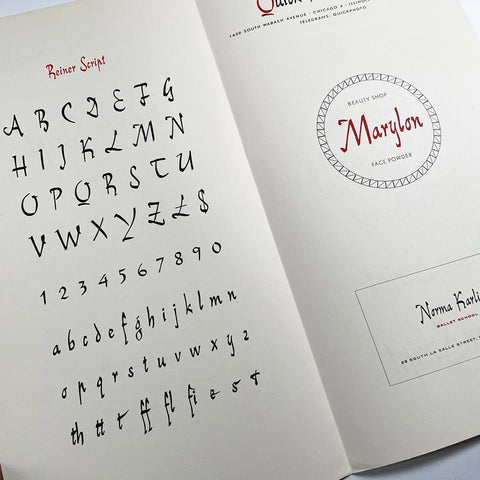 Reiner Script
A B C D E F G
H I J K L M N
O P Q R S T U
V W X Y Z £ $
1 2 3 4 5 6 7 8 9 0
a b c d e f g h i j k l m n
o p q r s t u v w x y z
th tt t ff fl fi e s t
Quick
1430 SOUTH WABASH AVENUE · CHICAGO 4 · ILLINOI
TELEGRAMS: QUICKPHOTO
BEAUTY SHOP
Marylon
FACE POWDER
Norma Karli
BALLET SCHOOL
25 SOUTH LA SALLE STREET,